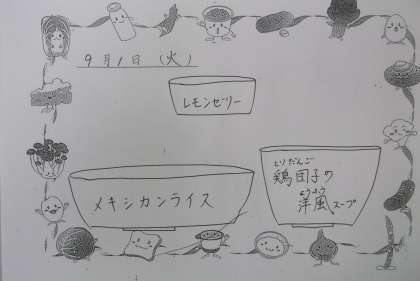 9月1日（火）
レモンゼリー
メキシカンライス
とりだんご
鶏団子の
ようふう
洋風スープ